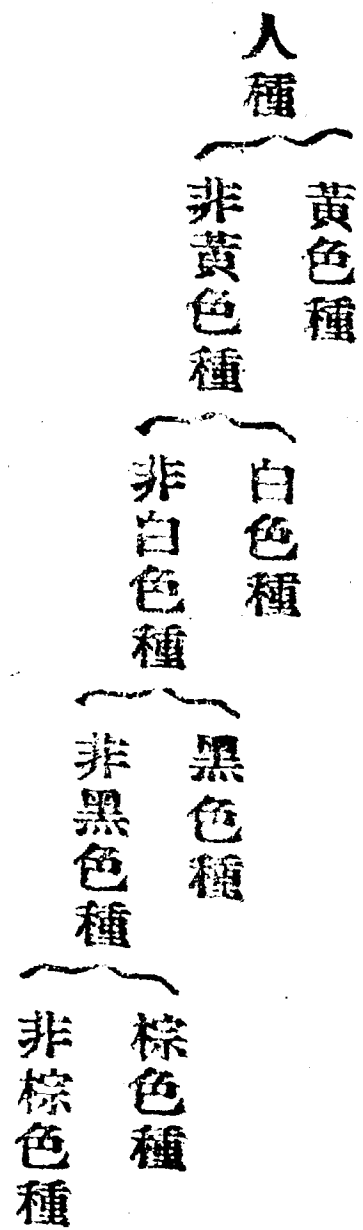 人種
黃色種
非黃色種
白色種
非白色種
黑色種
非黑色種
棕色種
非棕色種